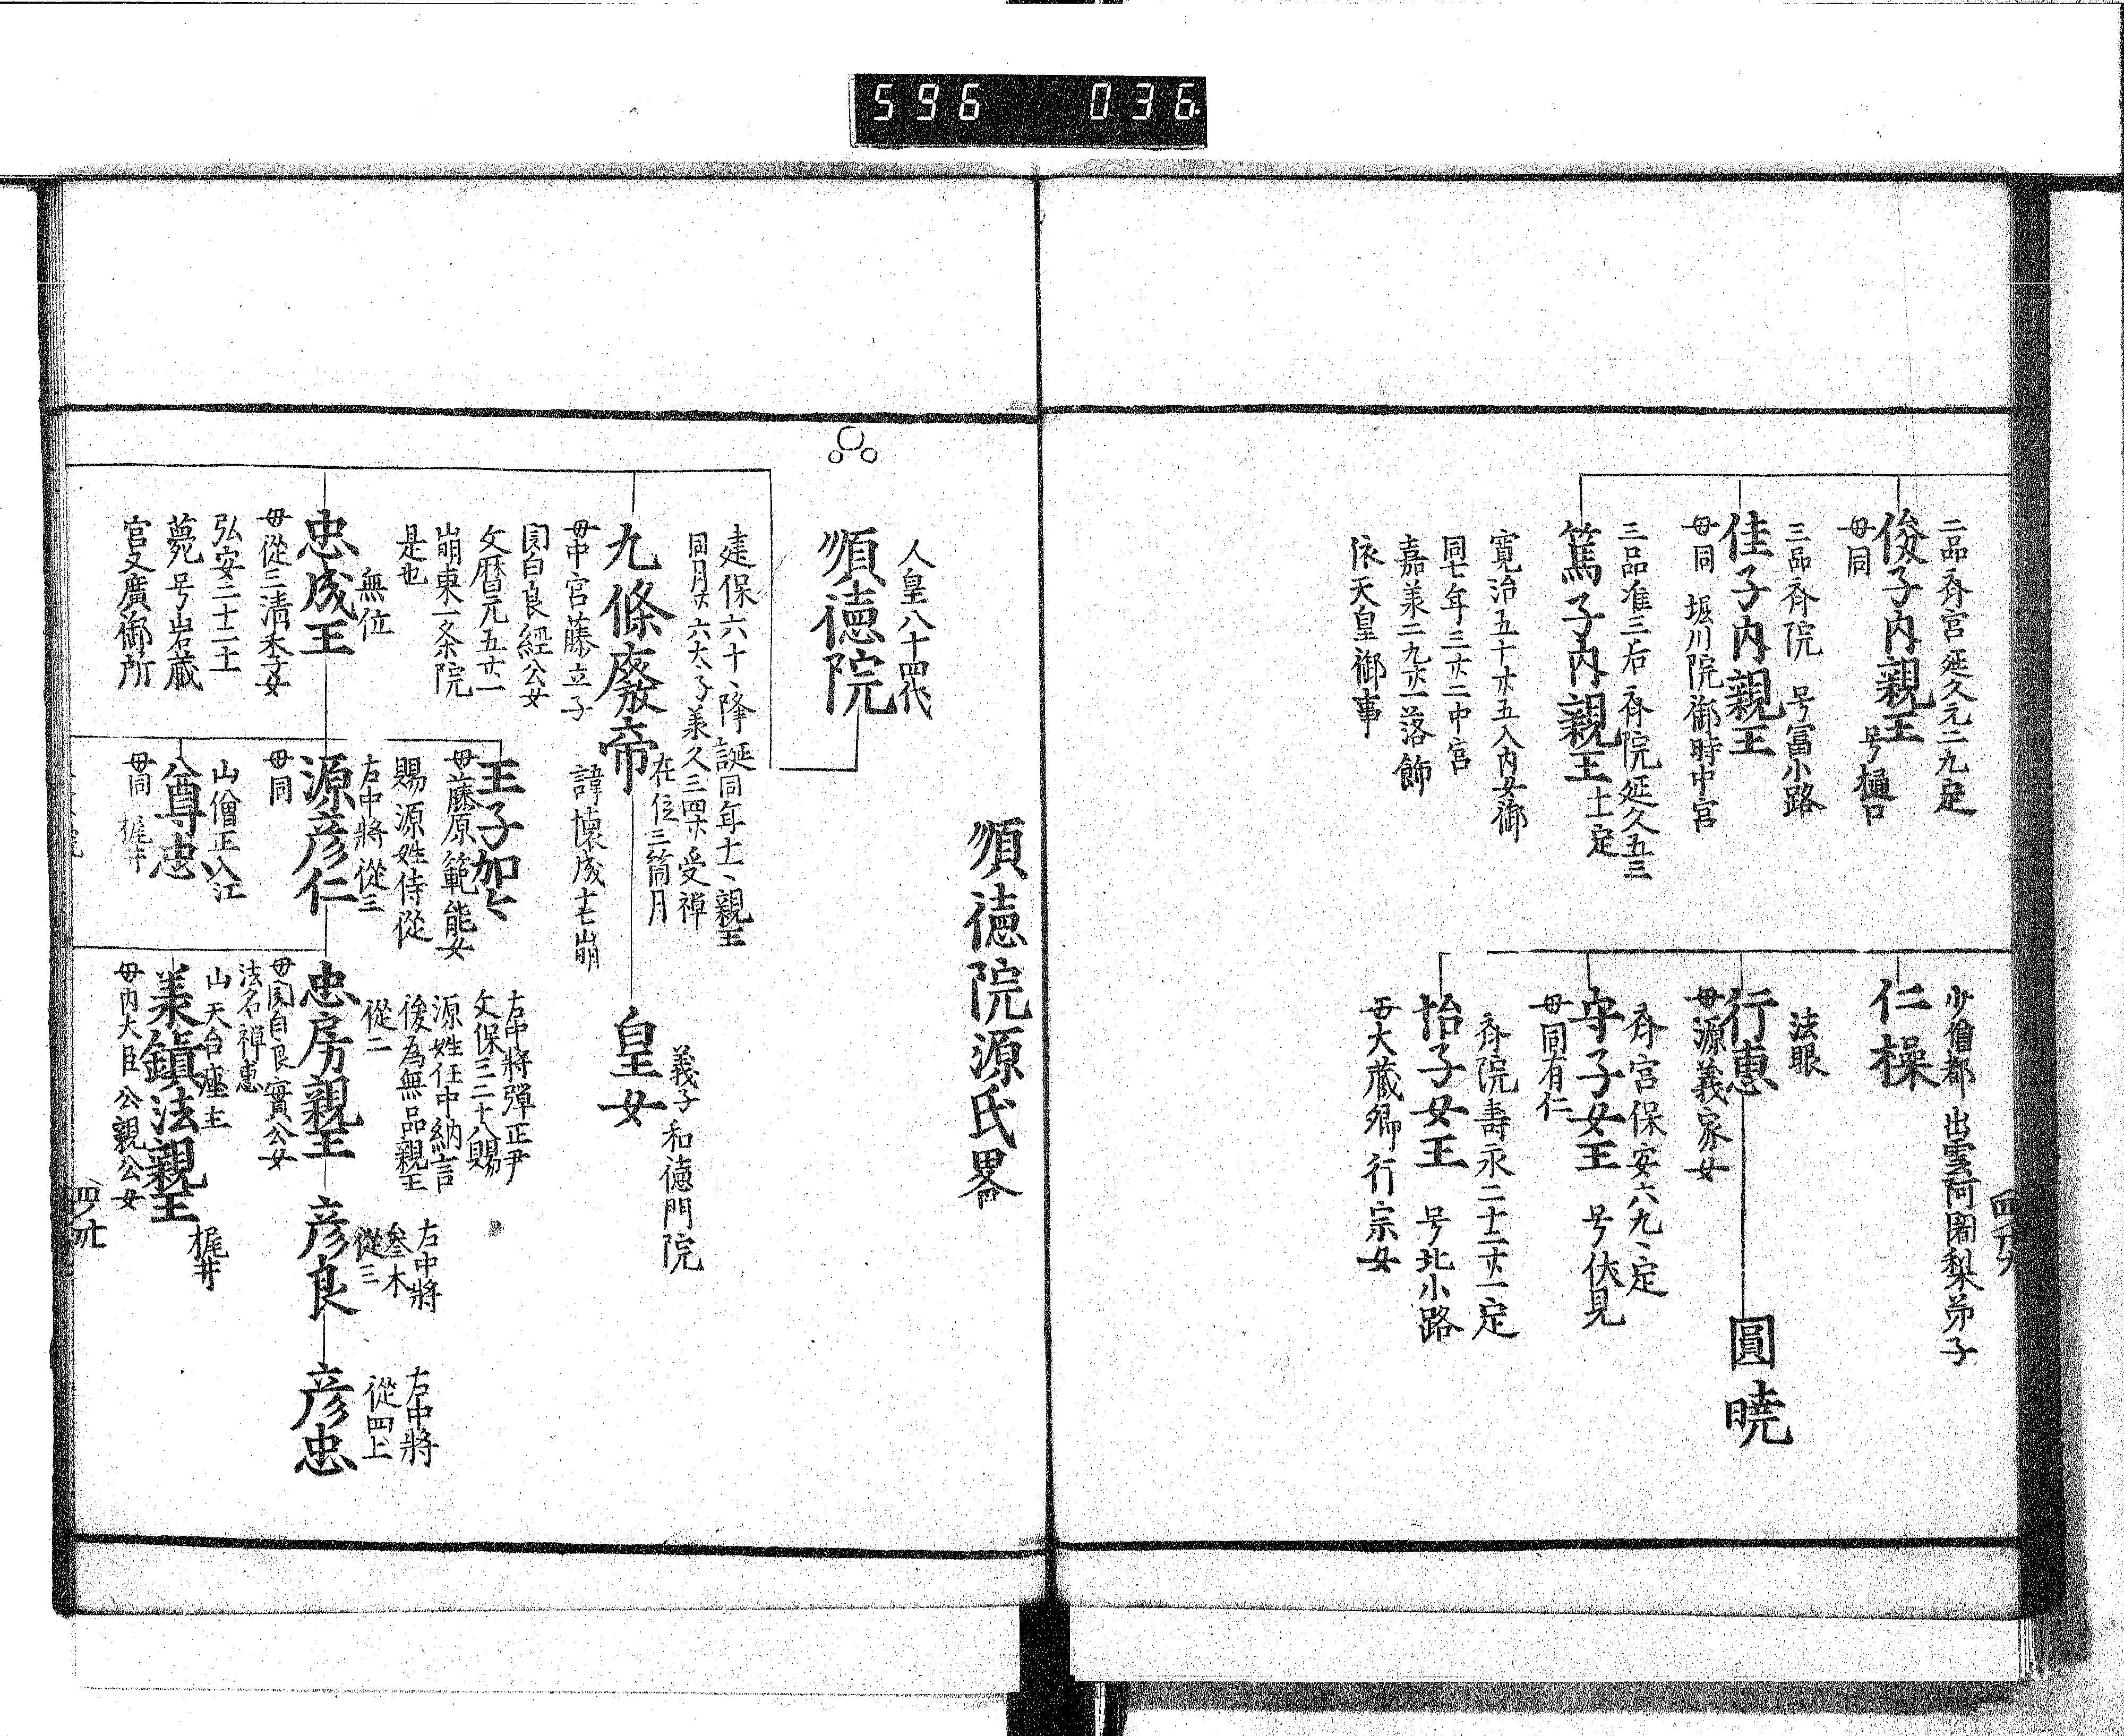 596 036
二品斉宮延久元二九定
俊子内親王
号樋口
母同
三品斉院 号富小路
佳子内親王
母同 堀川院御時中宮
三品准三后斉院延久五三
十一定
篤子内親王
寛治五十廿五入内女御
同七年三廿二中宮
嘉兼二九廿一落飾
依天皇御事
少僧都 出雲阿闍梨弟子
仁操
法眼
行恵
母源義家女
圓暁
斉宮保安六九、定
守子女王 号伏見
母同有仁
斉院壽永二十二廿一定
怡子女王 号北小路
母大蔵卿行宗女
順徳院源氏畧
人皇八十四代
順徳院
建保六十、降誕同年十一、親王
同月廿六太子兼久三四廿受禅
在位三箇月
九條廢帝
諱懐成十七崩
母中宮藤立子
関白良經公女
文暦元五廿一
崩東一条院
是也
義子和徳門院
皇女
無位
忠成王
母從三清季子女
弘安二十二十一
薨 号岩蔵
宮又廣御所
王子加々
母藤原範能女
賜源姓侍從
右中將從三
源彦仁
母同
山僧正入江
尊忠
母同 梶井
右中將彈正尹
文保三二十八賜
源姓任中納言
後為無品親王
從二
忠房親王
母関白良實公女
法名禅恵
山天台座主
兼鎮法親王
梶井
母内大臣公親公女
右中將
参木
從三
彦良
右中將
從四上
彦忠